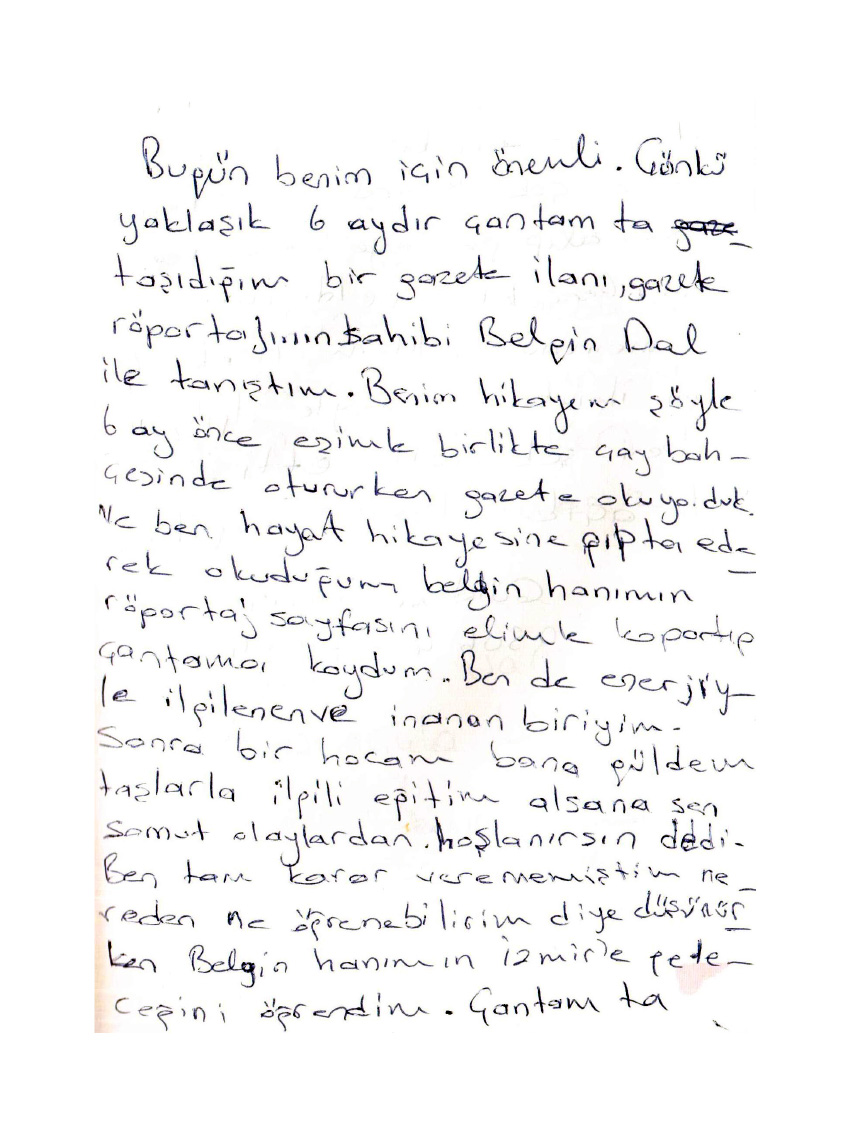 Bugün benim için önemli. Çünkü
yaklaşık 6 aydır çantam ta gaze
taşıdığım bir gazete ilanı, gazete
röportajının sahibi Belgin Dal
ile tanıştım. Benim hikayem şöyle
6 ay önce eşimle birlikte çay bah-
çesinde otururken gazete okuyo.duk.
Ve ben hayat hikayesine gıpta ede
rek okuduğum belgin hanımın
röportaj sayfasını elimle kopartıp
çantama koydum. Ben de enerjiy-
le ilgilenen ve inanan biriyim.
Sonra bir hocam bana güldem
taşlarla ilgili eğitim alsana sen
somut olaylardan hoşlanırsın dedi.
Ben tam karar verememiştim ne
reden ne öğrenebilirim diye düşünür
ken Belgin hanımın İzmir'e gele-
ceğini öğrendim. Çantam ta